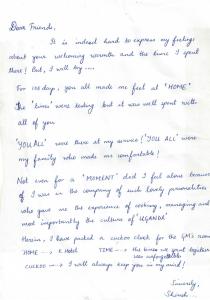 Dear Friends,
It is indeed hard to express my feelings
about your welcoming warmth and the time I spent
there! But, I will try....
For 100 days, you all made me feel at 'HOME'.
The 'times' were testing but it was well spent with
all of you
'YOU ALL' were there at my service ('YOU ALL' were
my family who made me comfortable!
Not even for a 'MOMENT' did I feel alone because
I was in the company of such lovely personalities
who gave me the experience of cooking, managing and
most importantly the culture of 'UGANDA'
Herein, I have picked a cuckoo clock for the GM's room
HOME → K Hotel TIME → the times we spent together
was unforgettable
CUCKOO → I will always keep you in my mind!
Sincerely,